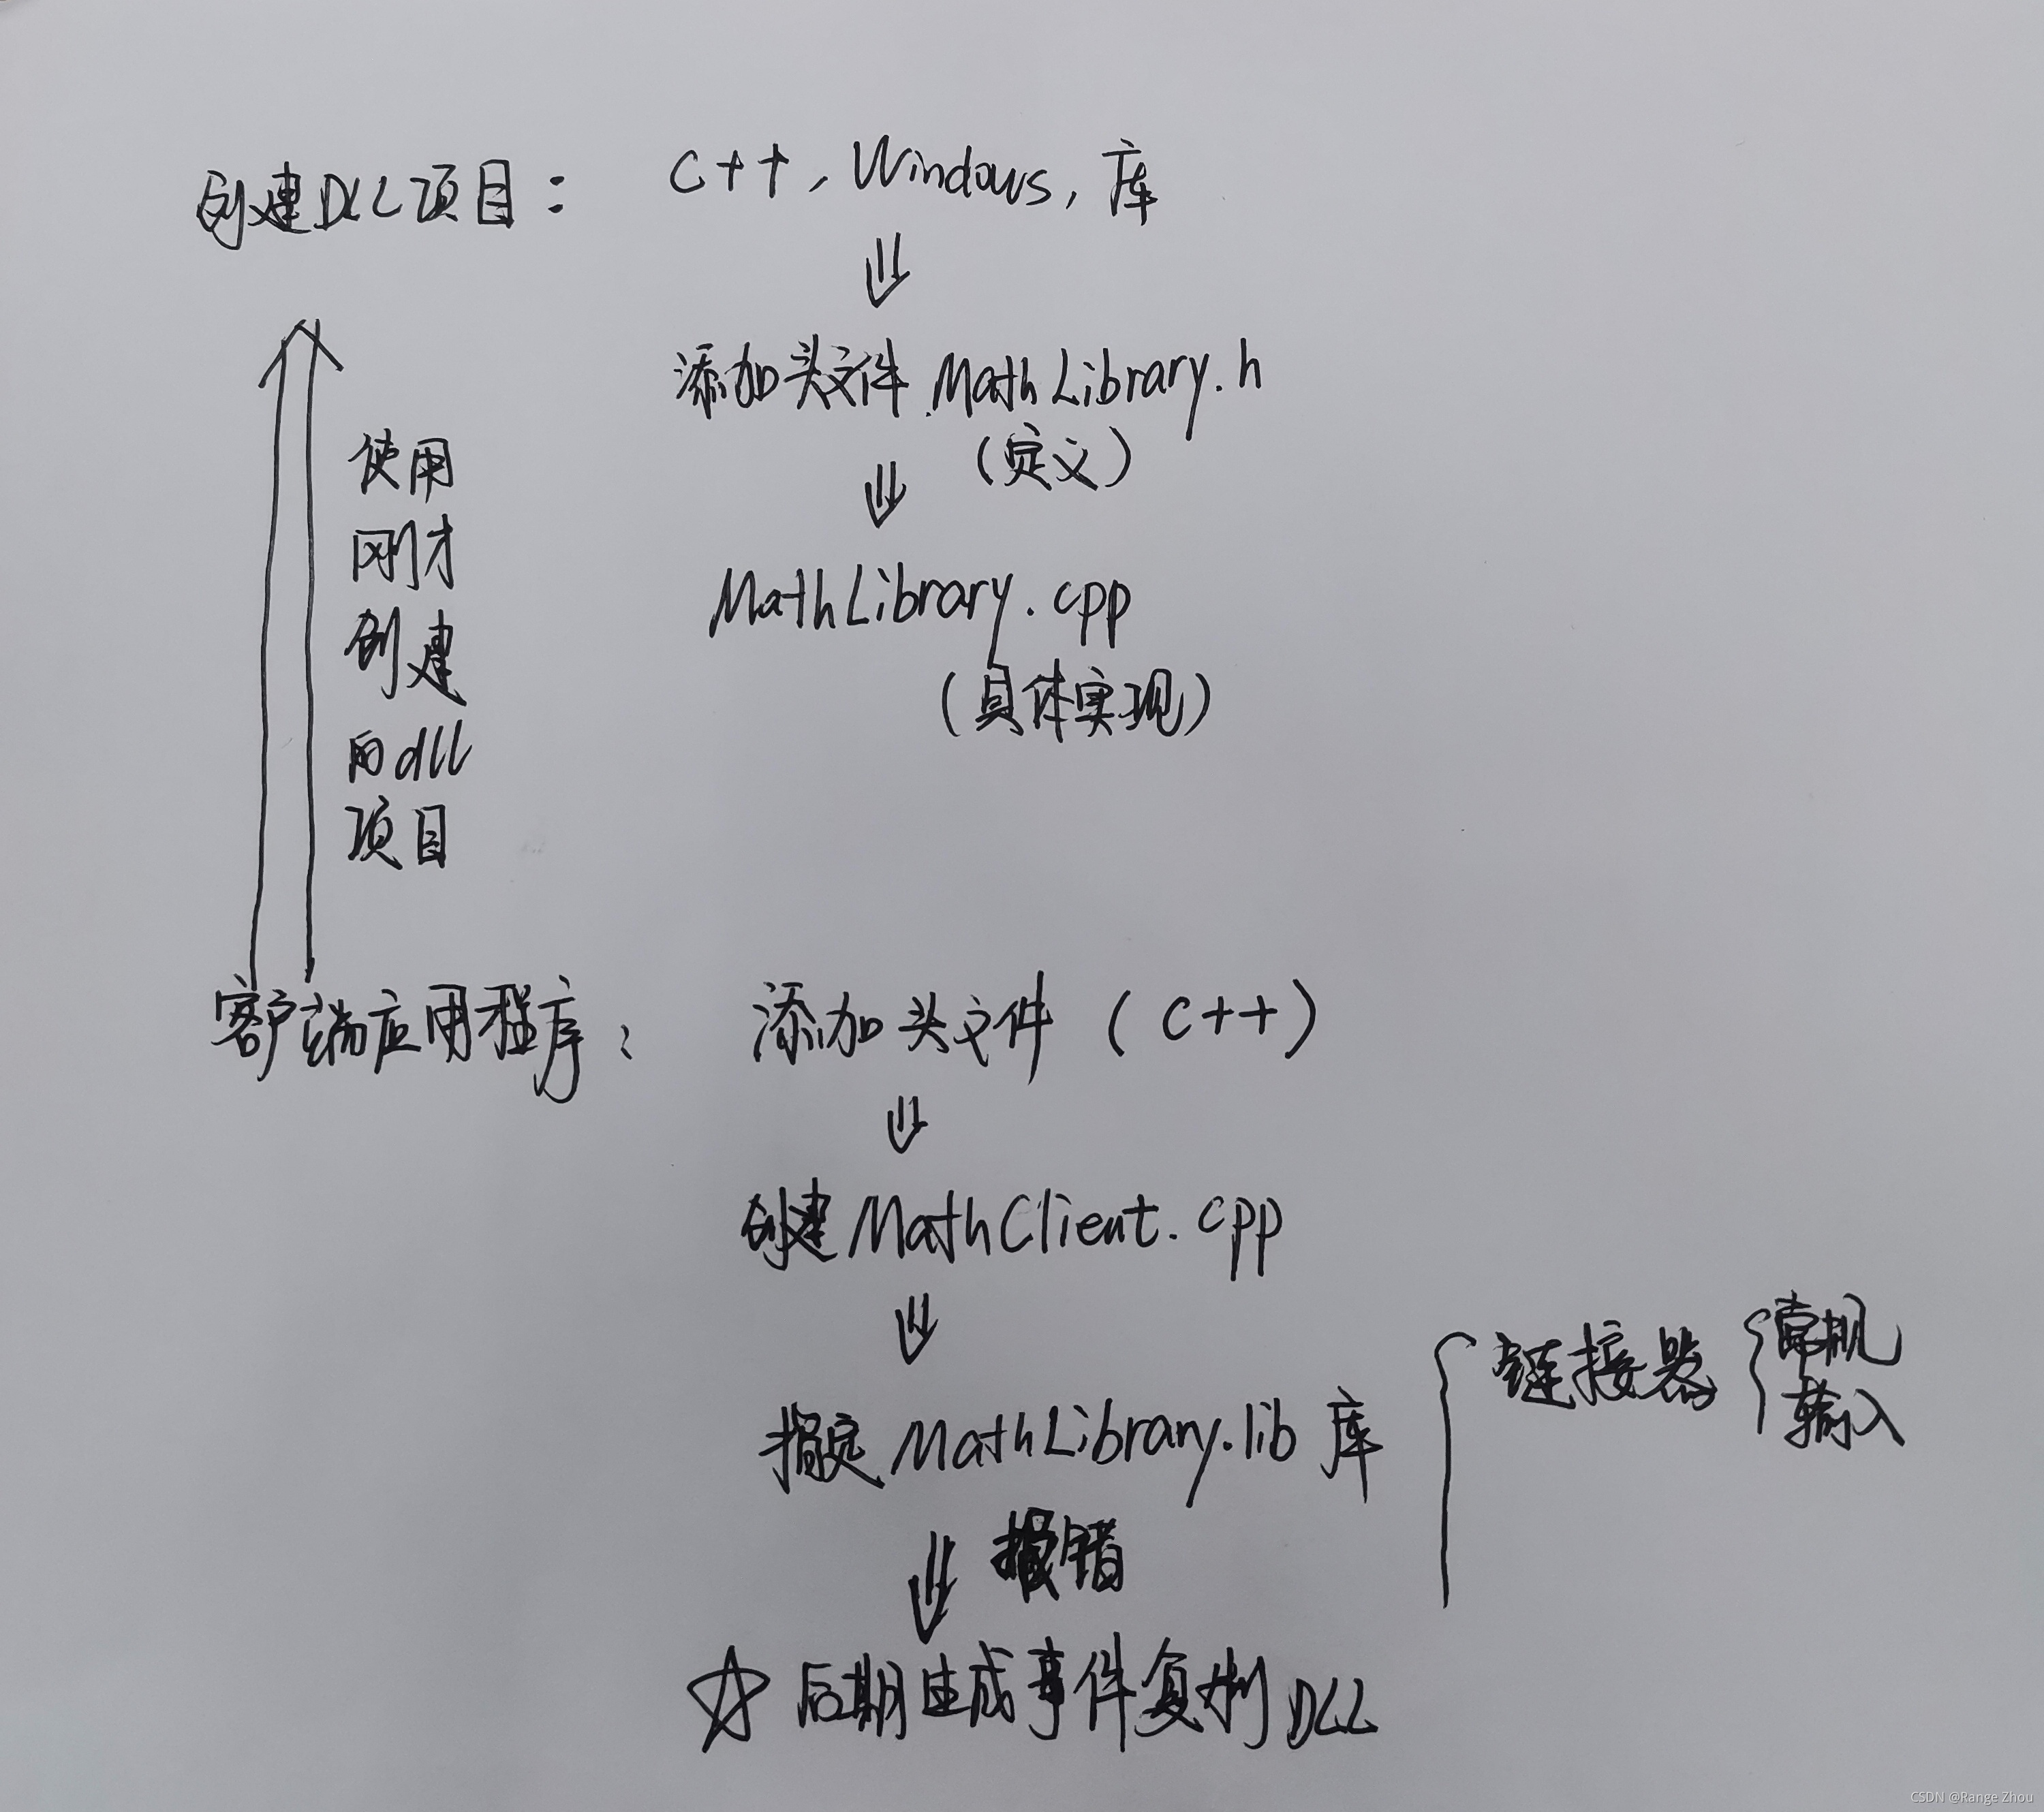 创建DLL项目： C++，Windows，库
添加头文件 MathLibrary.h
（定义）
MathLibrary.cpp
（具体实现）
使用
刚才
创建
的dll
项目
客户端应用程序： 添加头文件（C++）
创建MathClient.cpp
指定 MathLibrary.lib 库
链接器
常规
输入
报错
后期生成事件复制DLL
CSDN @Range Zhou